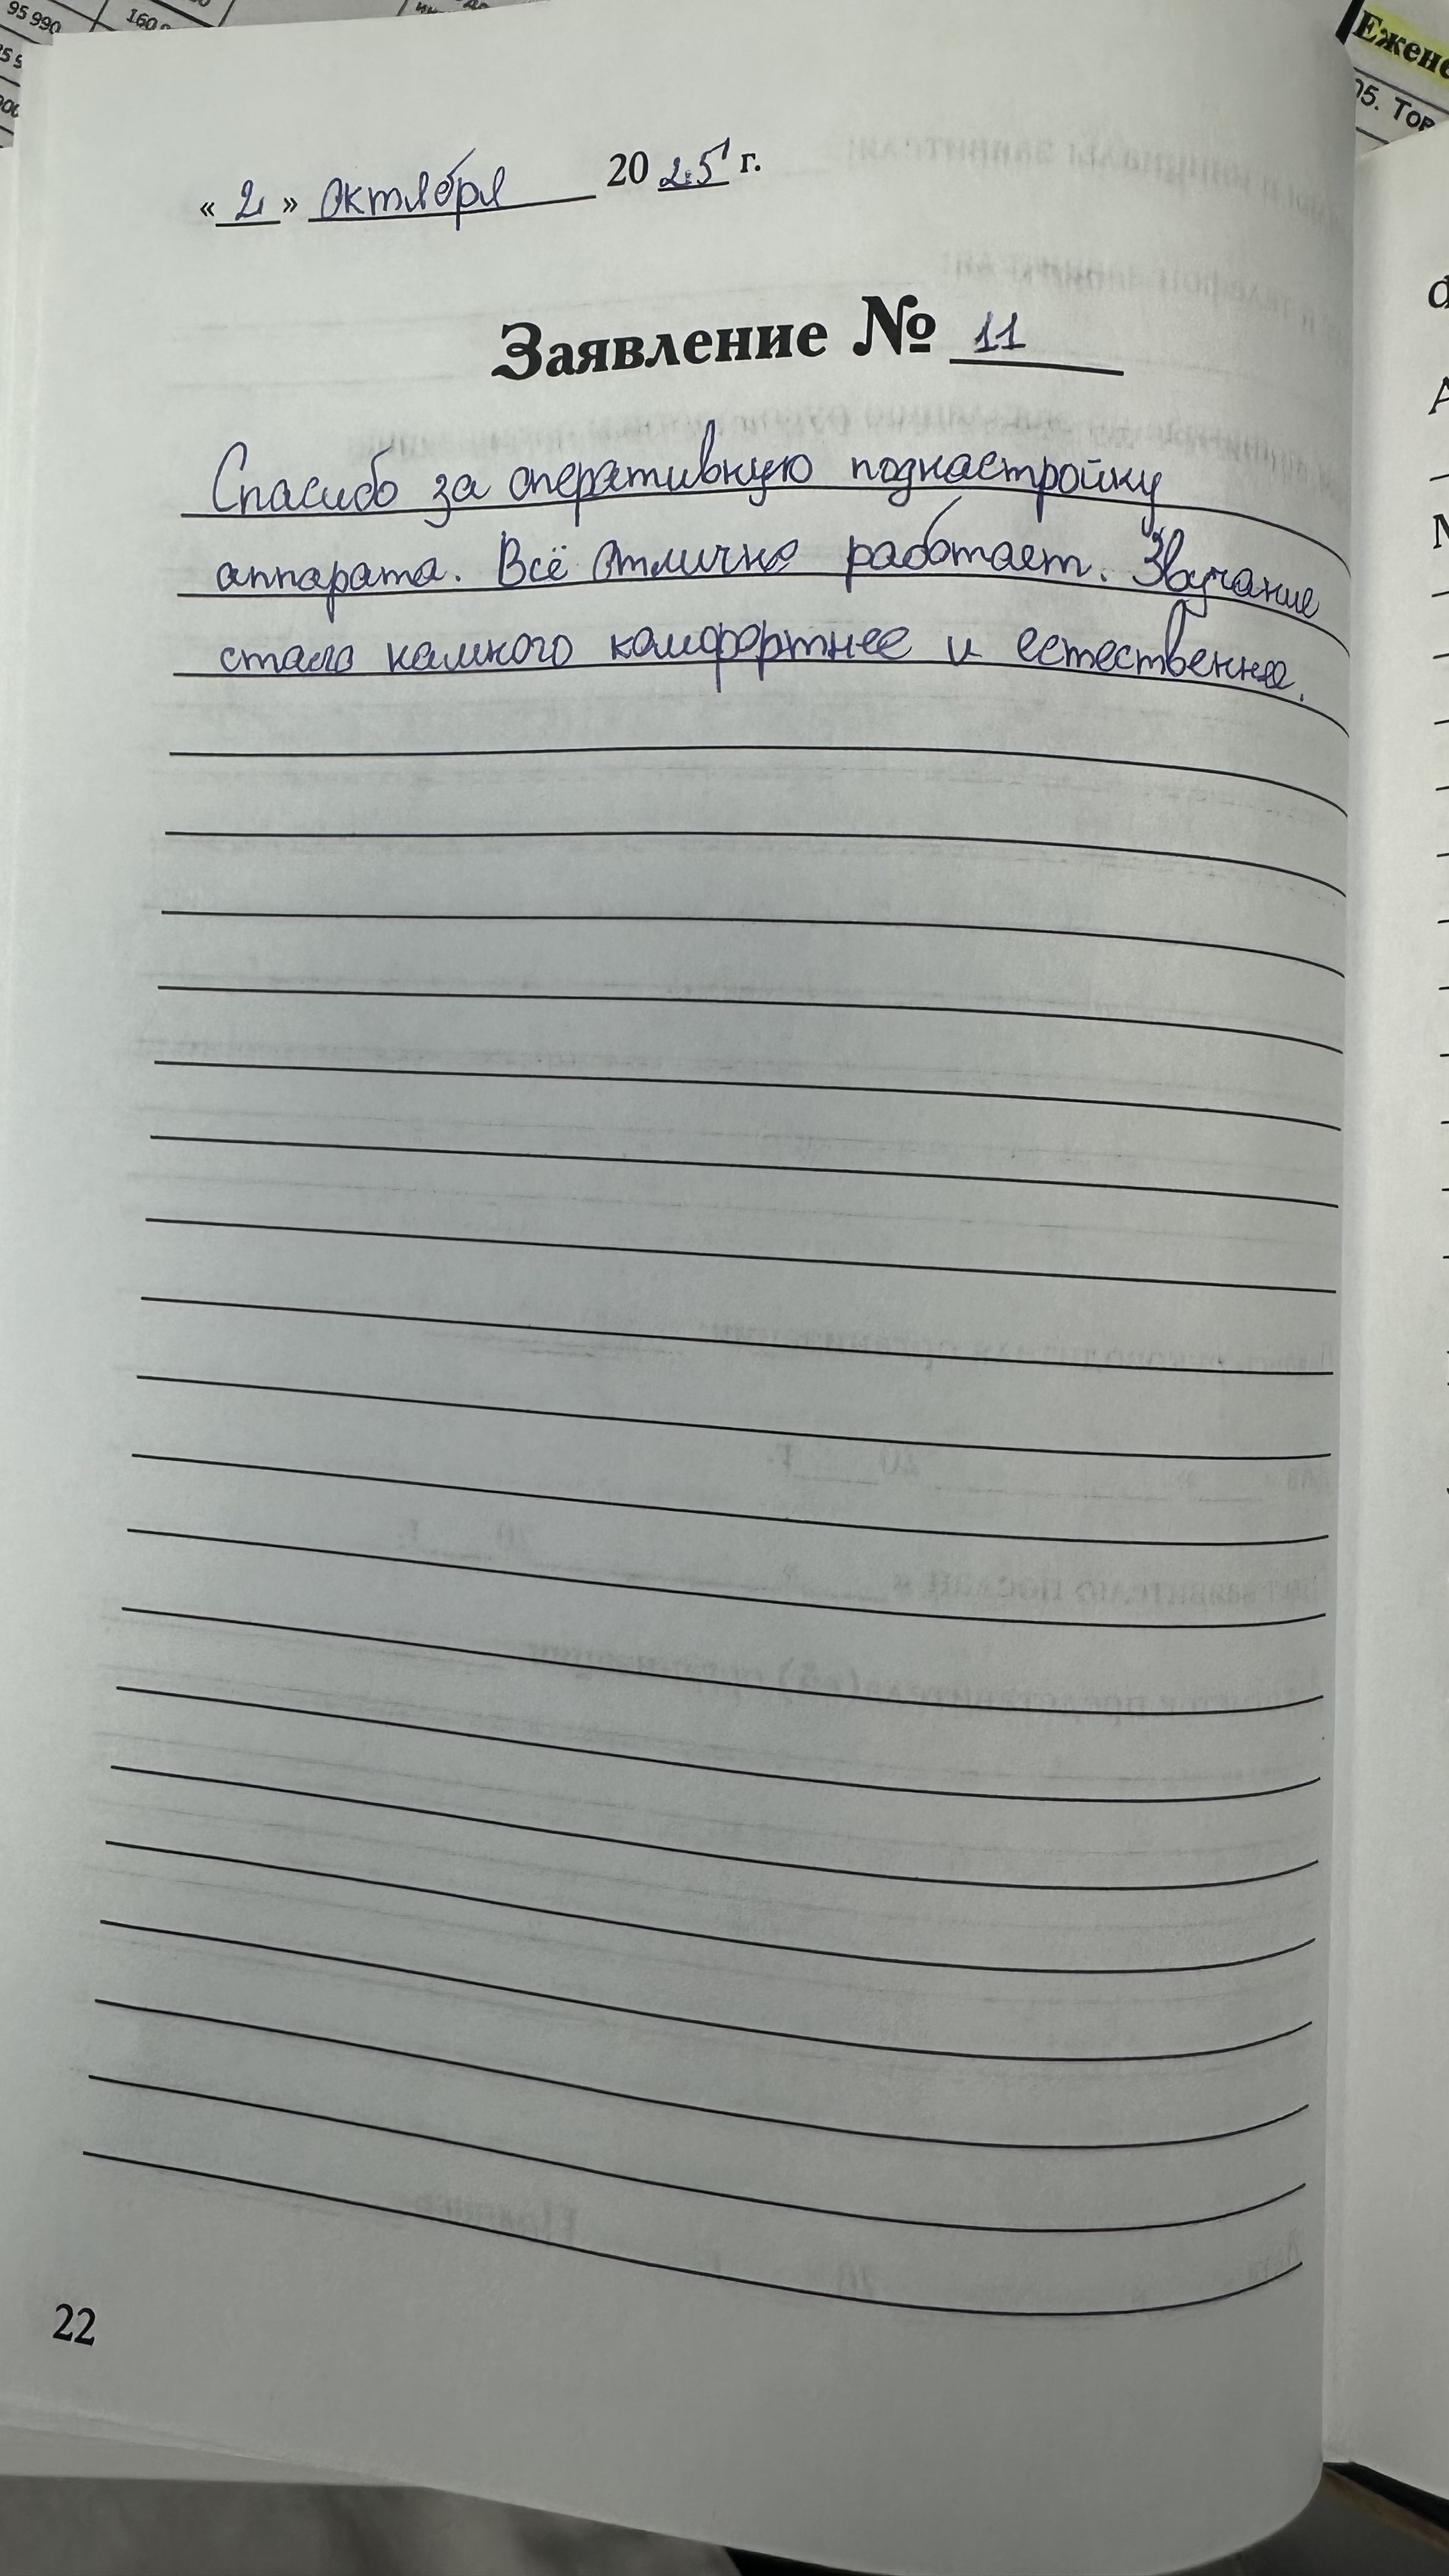 95 990
160
Ежене
05. Тов
«2» октября 2025 г.
Заявление № 11
Спасибо за оперативную поднастройку
аппарата. Всё отлично работает. Звучание
стало намного комфортнее и естественнее.
22